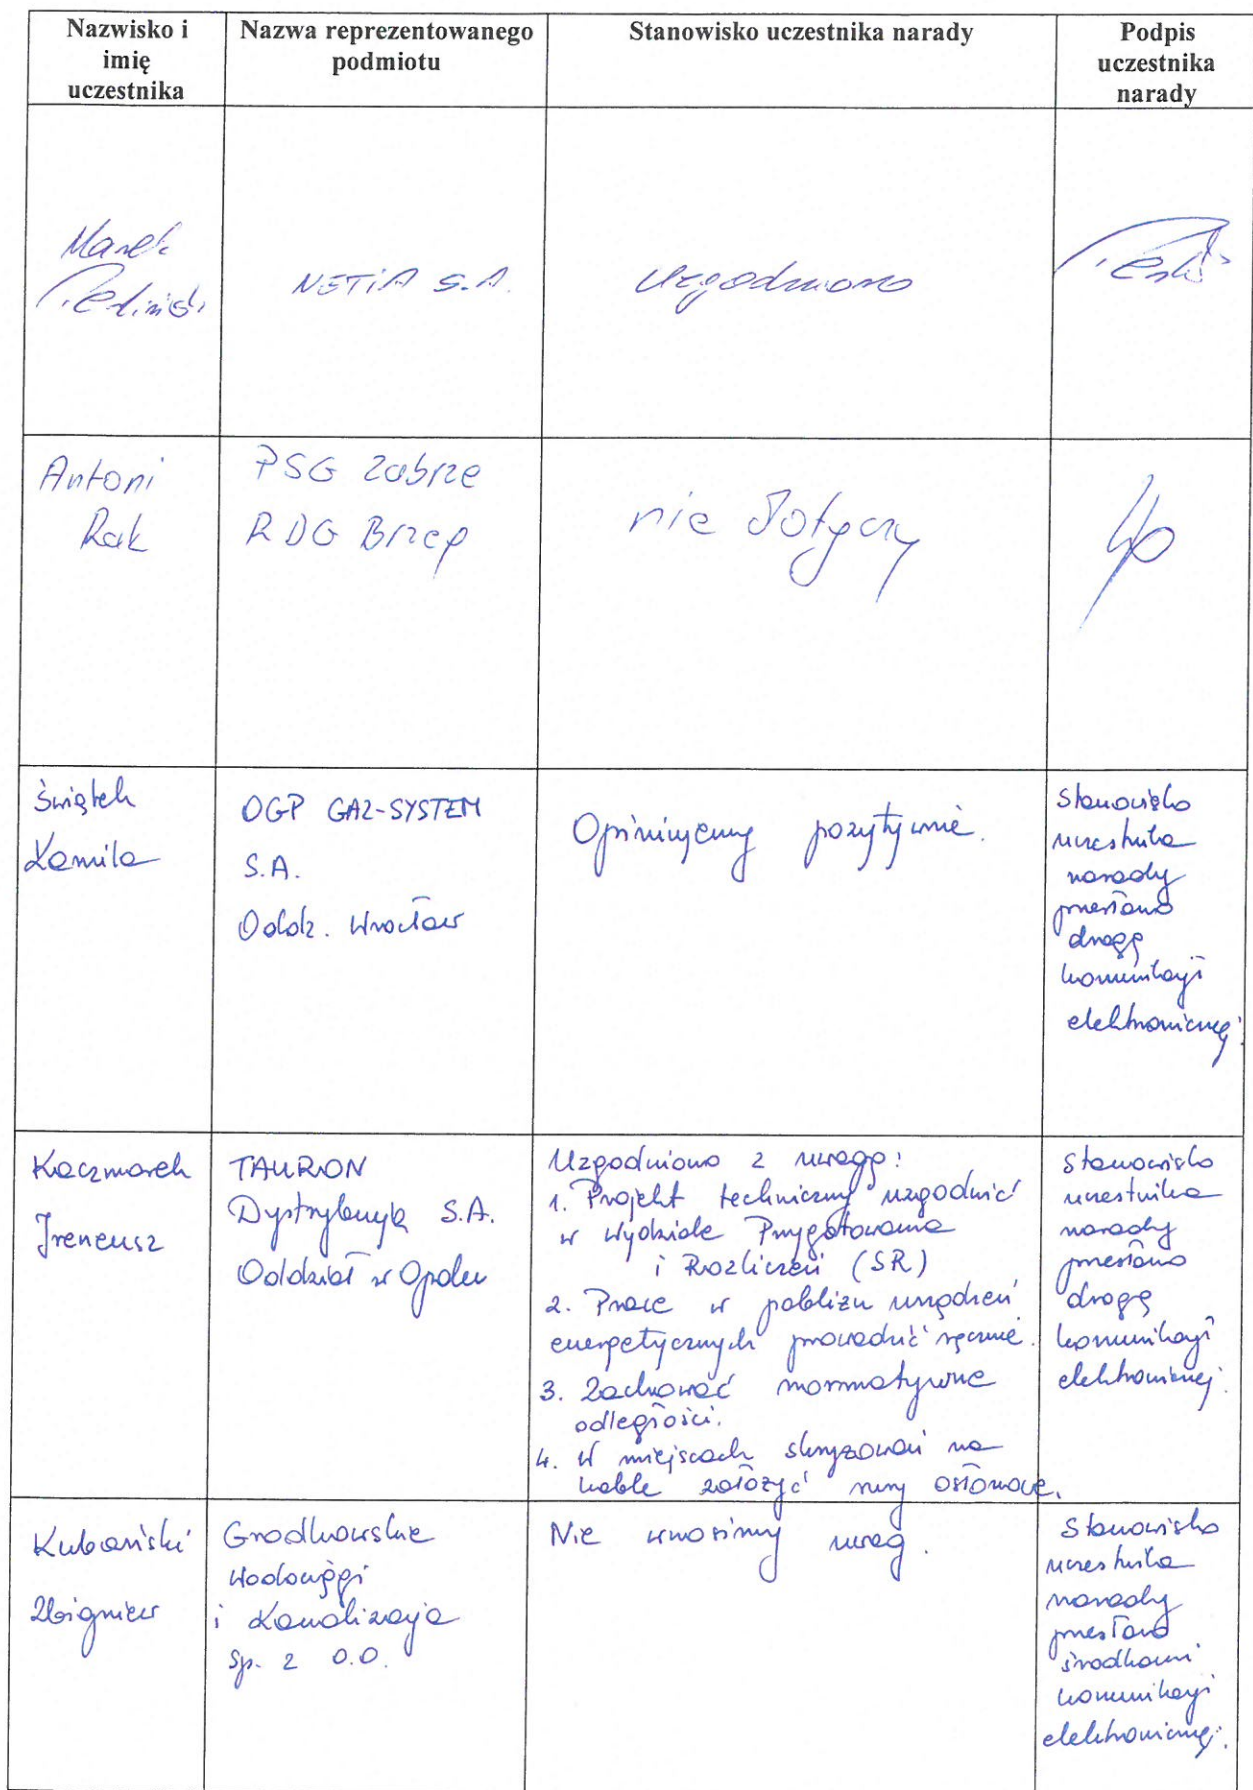 Nazwisko i
imię
uczestnika
Nazwa reprezentowanego
podmiotu
Stanowisko uczestnika narady
Podpis
uczestnika
narady
Marek
NETiA S.A.
Uzgodniono
Antoni
Rak
PSG Zabrze
RDG Brzeg
nie dotyczy
Świątek
Kamila
OGP GAZ-SYSTEM
S.A.
Oddz. Wrocław
Opiniujemy pozytywnie.
Stanowisko
uczestnika
narady
przesłano
drogą
komunikacji
elektronicznej.
Kaczmarek
Ireneusz
TAURON
Dystrybucja S.A.
Oddział w Opolu
Uzgodniono z uwagą:
1. Projekt techniczny uzgodnić
w Wydziale Przygotowania
i Rozliczeń (SR)
2. Prace w pobliżu urządzeń
energetycznych prowadzić ręcznie.
3. Zachować normatywne
odległości.
4. W miejscach skrzyżowań na
kable założyć rury osłonowe.
Stanowisko
uczestnika
narady
przesłano
drogą
komunikacji
elektronicznej.
Kubański
Zbigniew
Grodkowskie
Wodociągi
i Kanalizacja
Sp. z o.o.
Nie wnosimy uwag.
Stanowisko
uczestnika
narady
przesłano
środkami
komunikacji
elektronicznej.